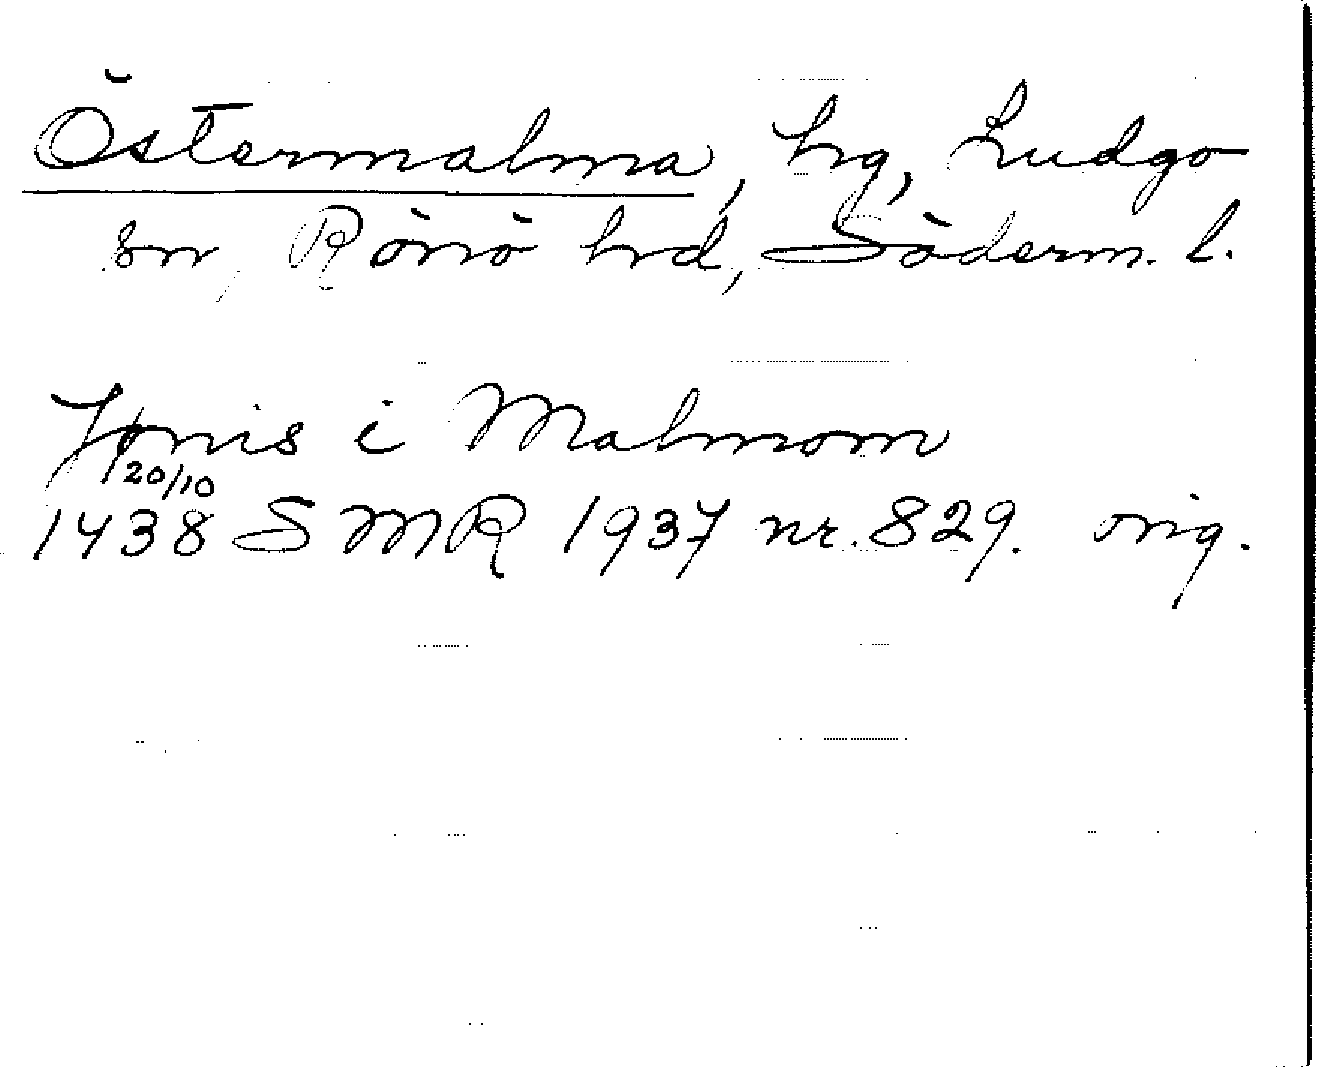 Östermalma, hg, Ludgo
sn, Rönö hrd, Söderm. l.
Jønis i Malmom
20/10
1438 SMR 1937 nr. 829. orig.